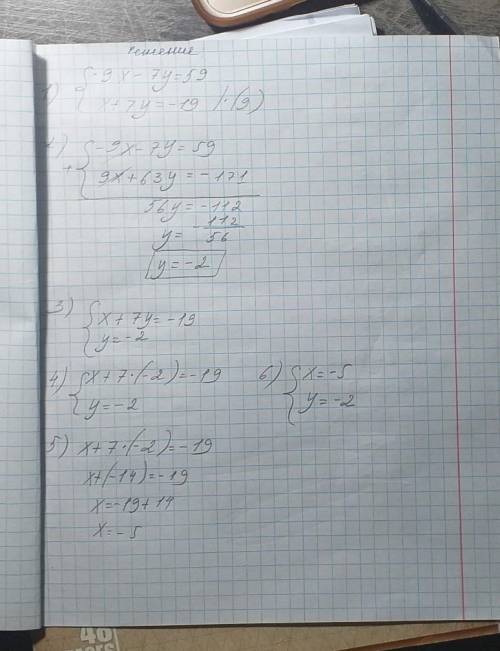 Решение
1) { -9x - 7y = 59
x + 7y = -19 / · (9)
2) + { -9x - 7y = 59
9x + 63y = -171
56y = -112
y = - 112/56
y = -2
3) { x + 7y = -19
y = -2
4) { x + 7 · (-2) = -19
y = -2
5) x + 7 · (-2) = -19
x + (-14) = -19
x = -19 + 14
x = -5
6) { x = -5
y = -2